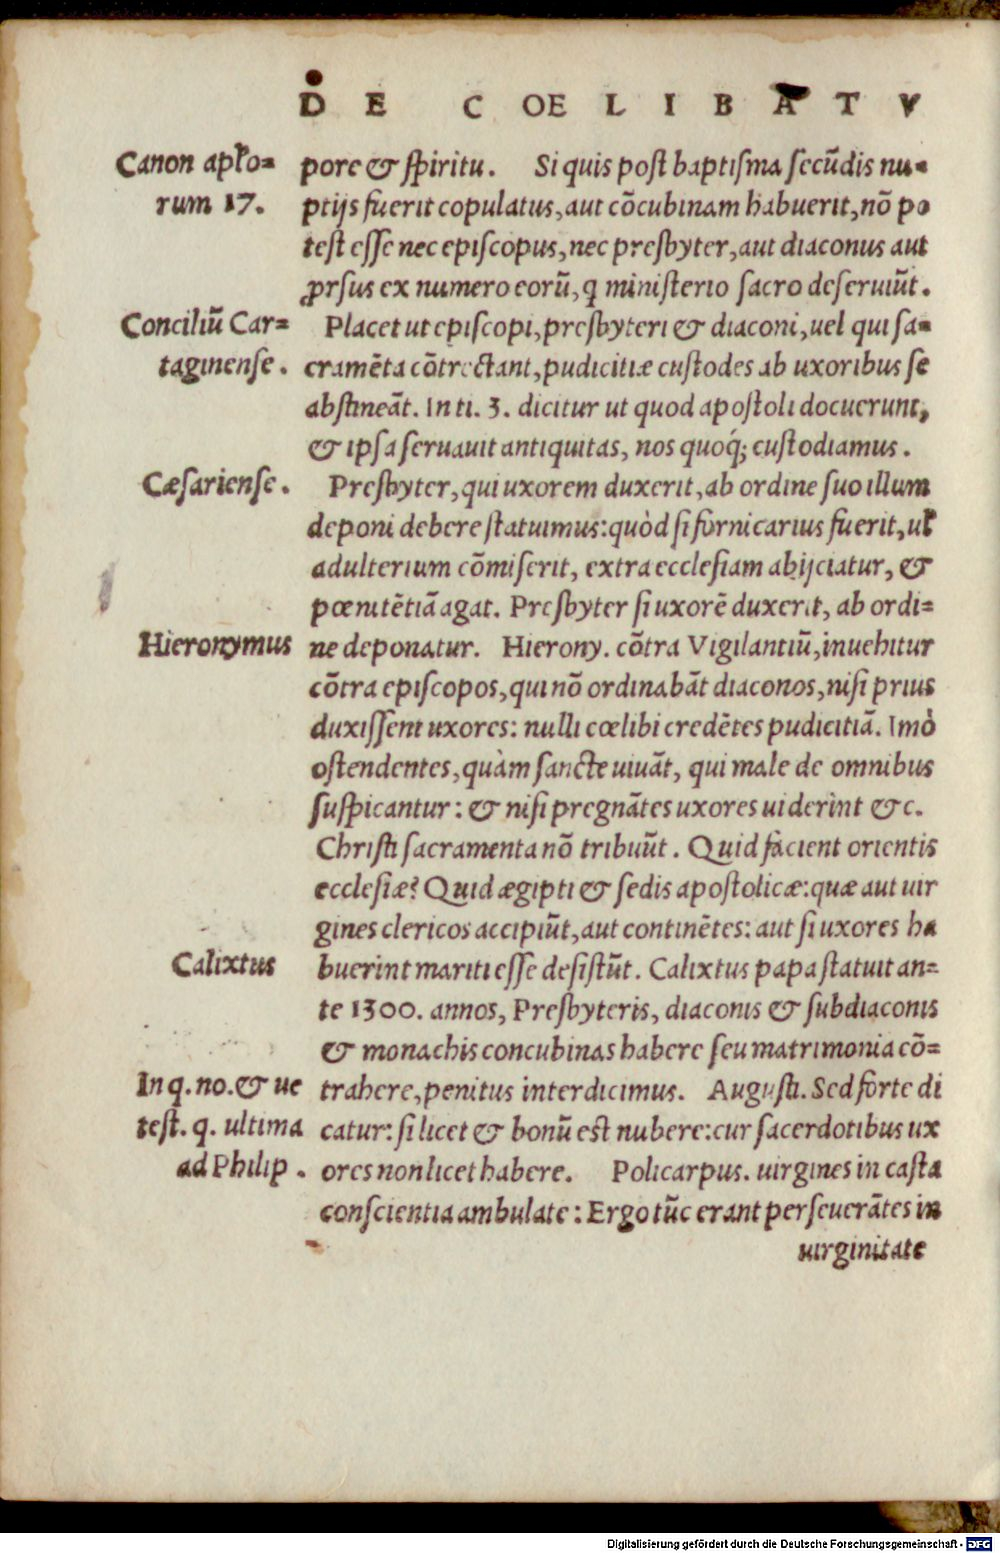 DE COELIBATV
Canon apľo=
rum 17.
pore & ſpiritu. Si quis poſt baptiſma ſecũdis nu=
ptijs fuerit copulatus, aut cõcubinam habuerit, nõ po
teſt eſſe nec epiſcopus, nec preſbyter, aut diaconus aut
ꝓrſus ex numero eorũ, q miniſterio ſacro deſeruiũt.
Conciliũ Car=
taginenſe.
Placet ut epiſcopi, preſbyteri & diaconi, uel qui ſa=
cramẽta cõtrectant, pudicitiæ cuſtodes ab uxoribus ſe
abſtineãt. In ti. 3. dicitur ut quod apoſtoli docuerunt,
& ipſa ſeruauit antiquitas, nos quoq́; cuſtodiamus.
Cæſarienſe.
Preſbyter, qui uxorem duxerit, ab ordine ſuo illum
deponi debere ſtatuimus: quòd ſi fornicarius fuerit, uľ
adulterium cõmiſerit, extra eccleſiam abijciatur, &
pœnitẽtiã agat. Preſbyter ſi uxorẽ duxerit, ab ordi=
Hieronymus
ne deponatur. Hierony. cõtra Vigilantiũ, inuehitur
cõtra epiſcopos, qui nõ ordinabãt diaconos, niſi prius
duxiſſent uxores: nulli cœlibi credẽtes pudicitiã. Imò
oſtendentes, quàm ſancte uiuãt, qui male de omnibus
ſuſpicantur: & niſi pregnãtes uxores uiderint &c.
Chriſti ſacramenta nõ tribuũt. Quid facient orientis
eccleſiæ? Quid ægipti & ſedis apoſtolicæ: quæ aut uir
gines clericos accipiũt, aut continẽtes: aut ſi uxores ha
Calixtus
buerint mariti eſſe deſiſtũt. Calixtus papa ſtatuit an=
te 1300. annos, Preſbyteris, diaconis & ſubdiaconis
& monachis concubinas habere ſeu matrimonia cõ=
In q. no. & ue
teſt. q. ultima
ad Philip.
trahere, penitus interdicimus. Auguſti. Sed forte di
catur: ſi licet & bonũ eſt nubere: cur ſacerdotibus ux
ores non licet habere. Policarpus. uirgines in caſta
conſcientia ambulate: Ergo tũc erant perſeuerãtes in
uirginitate
Digitalisierung gefördert durch die Deutsche Forschungsgemeinschaft - DFG